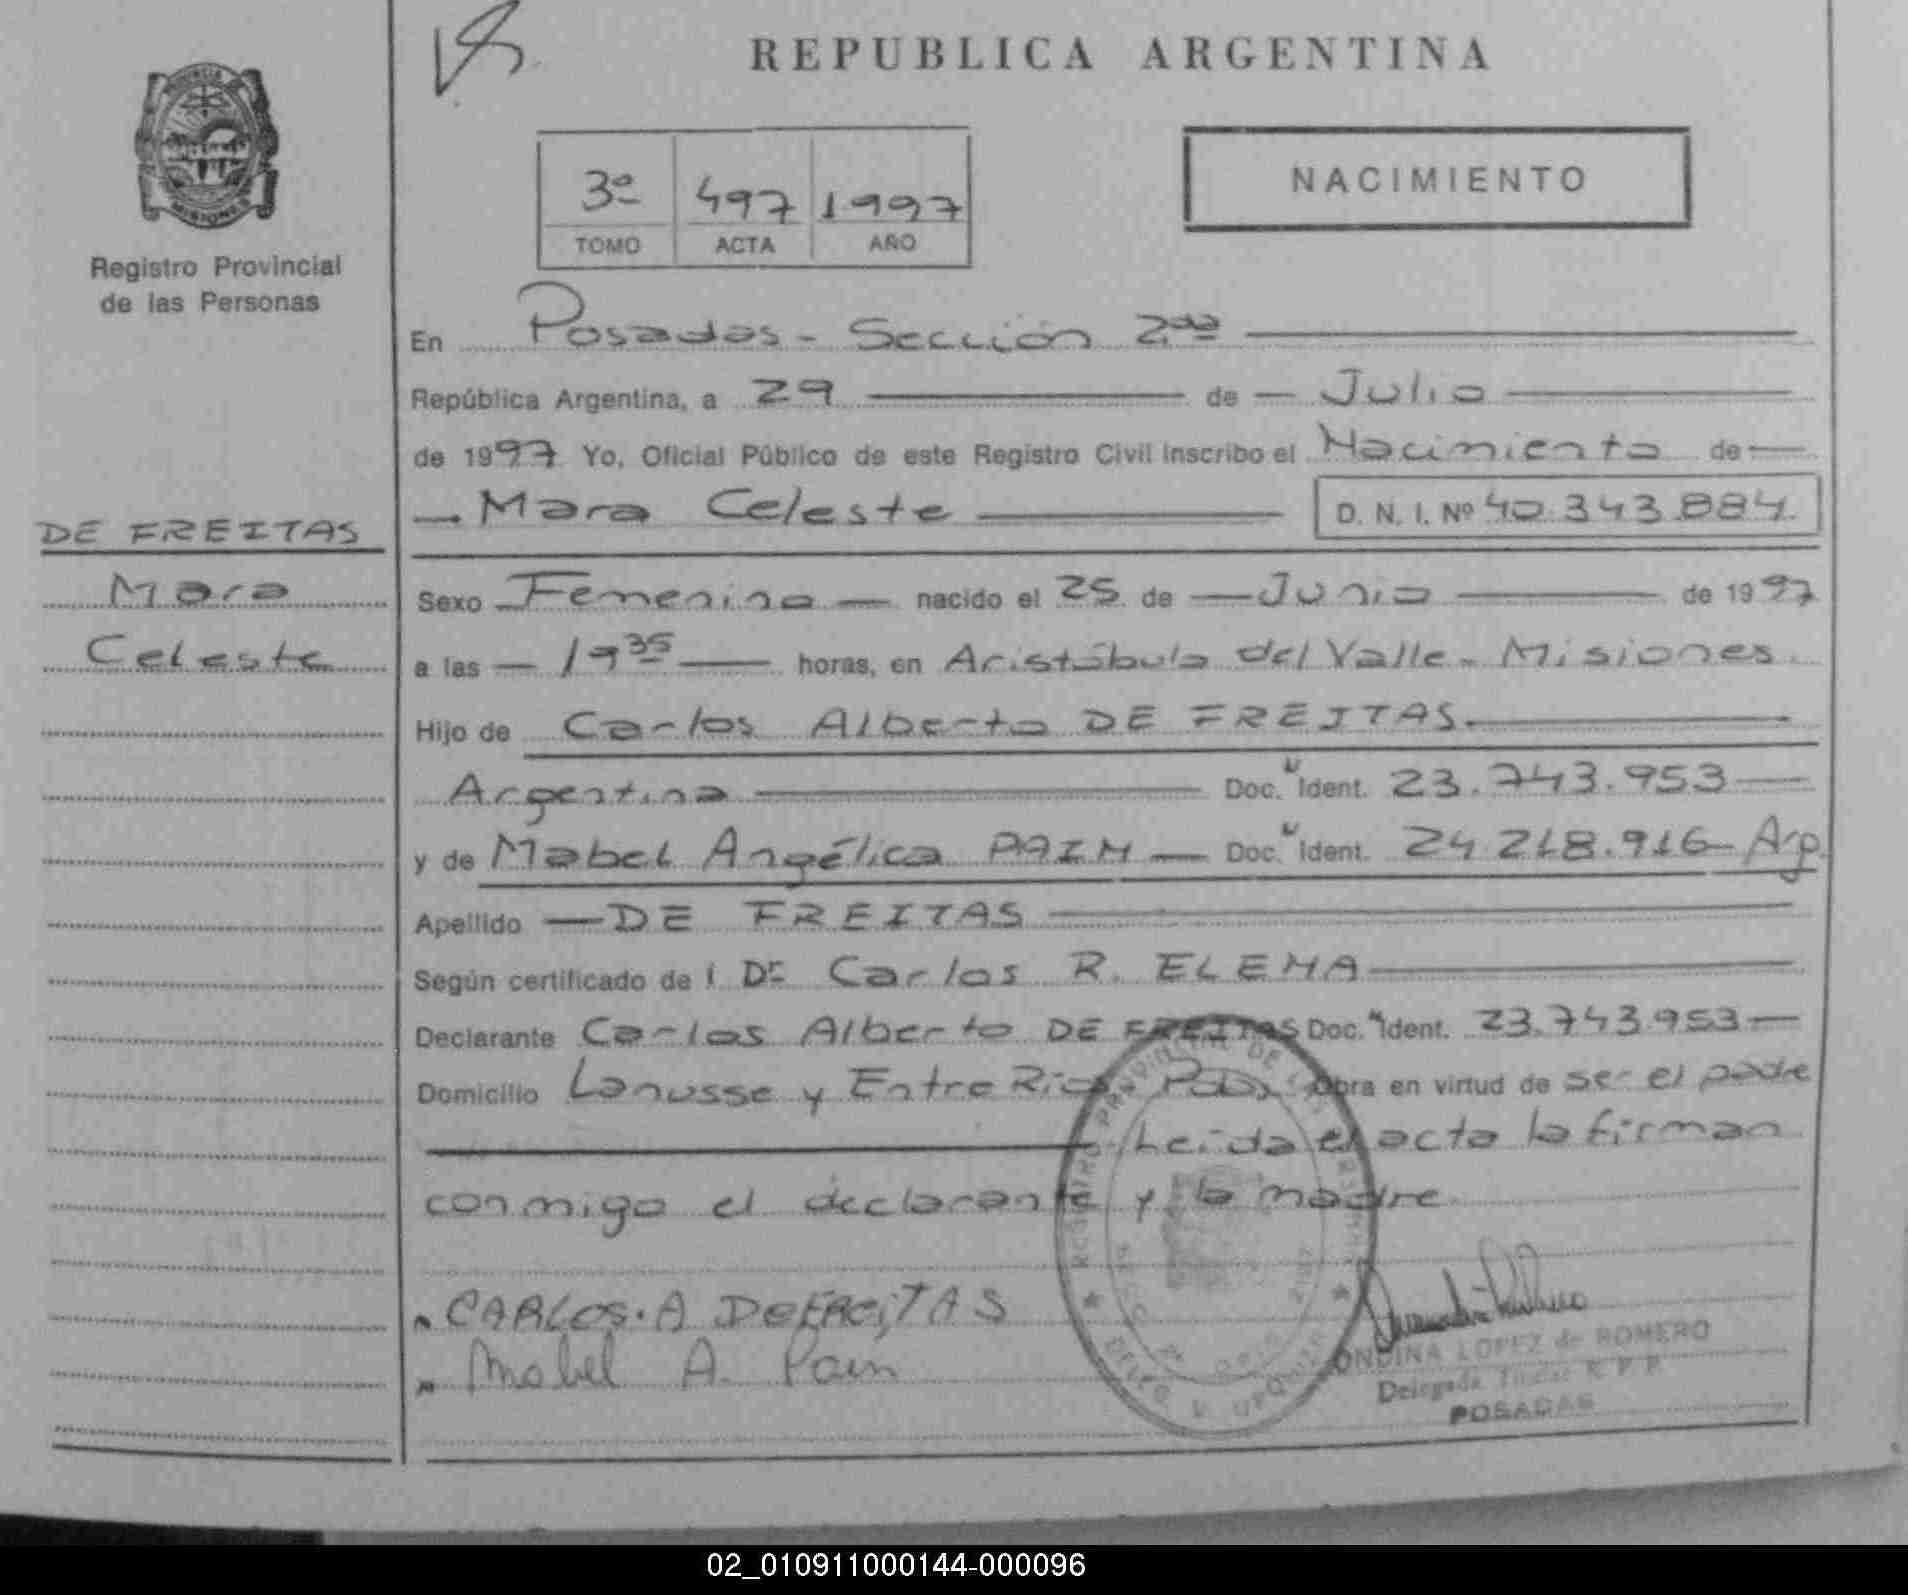 REPUBLICA ARGENTINA
NACIMIENTO
3º 497 1997
TOMO ACTA AÑO
MISIONES
Registro Provincial
de las Personas
En Posadas - Sección 2da
República Argentina, a 29 de Julio
de 1997 Yo, Oficial Público de este Registro Civil inscribo el Nacimiento de
Mara Celeste D. N. I. Nº 40.343.884.
DE FREITAS
Mara
Celeste
Sexo Femenino nacido el 25 de Junio de 1997
a las 19 35 horas, en Aristóbulo del Valle - Misiones
Hijo de Carlos Alberto DE FREITAS
Argentina Doc. Ident. 23.743.953
y de Mabel Angélica PAIM Doc. Ident. 24 218.916 Arg.
Apellido DE FREITAS
Según certificado de Dr Carlos R. ELEMA
Declarante Carlos Alberto DE FREITAS Doc. Ident. 23.743.953
Domicilio Lanusse y Entre Rios, Pdas, Obra en virtud de ser el padre
Leída el acta la firman
conmigo el declarante y la madre
CARLOS. A DEFREITAS
Mabel A. Paim
ONDINA LOPEZ de ROMERO
Delegada Titular R. P. P.
POSADAS
02_010911000144-000096